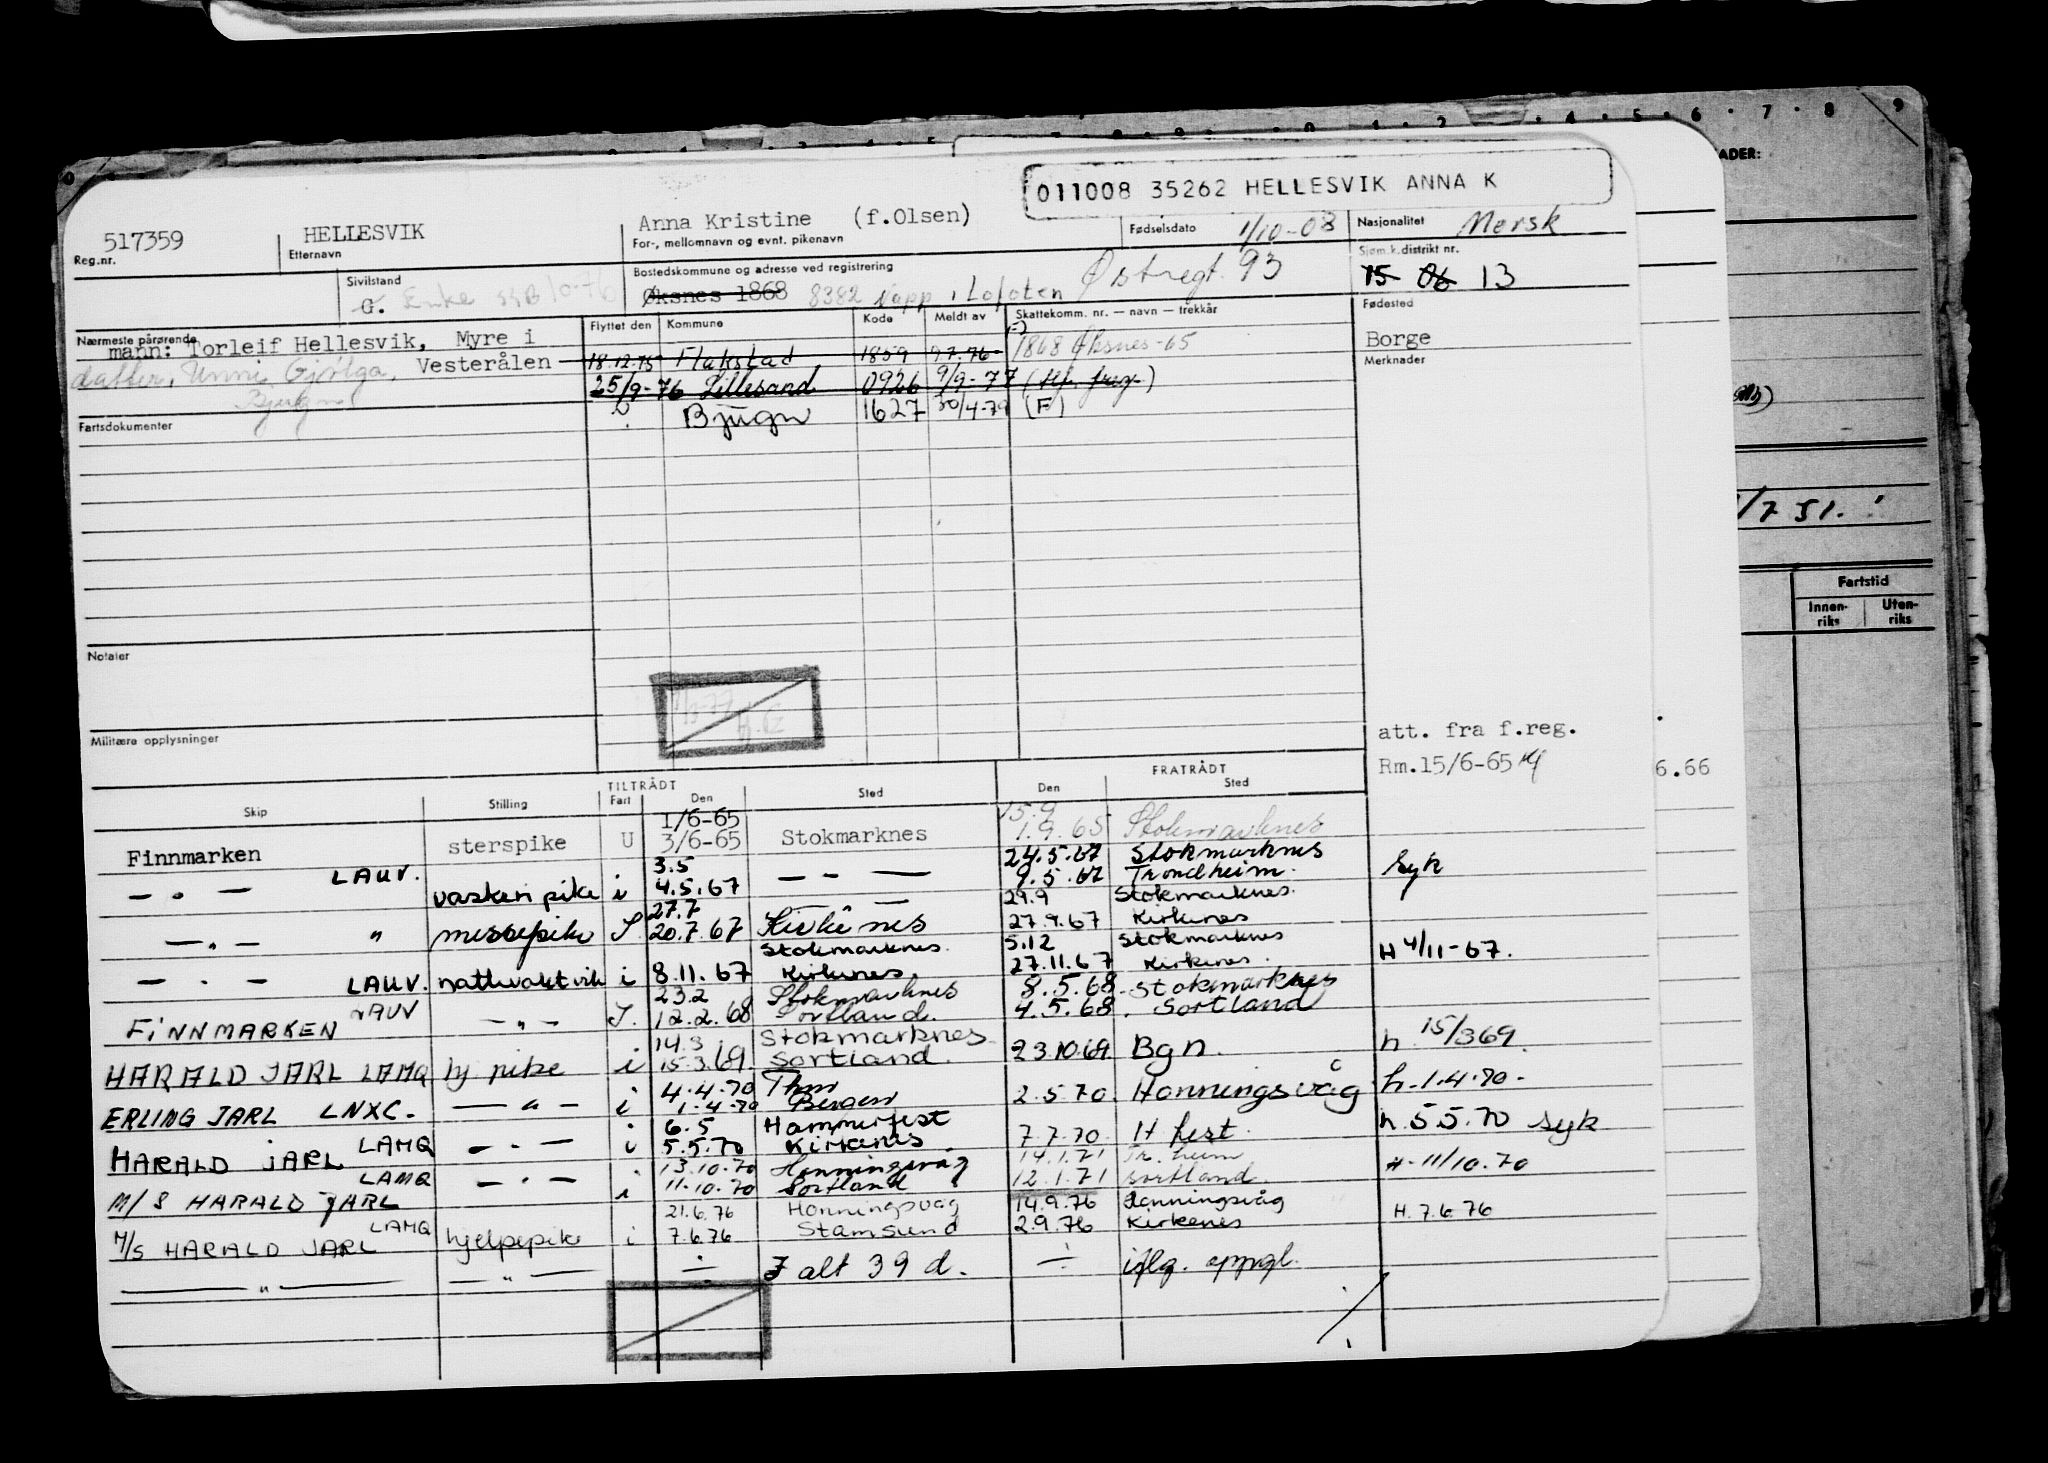 011008 35262 HELLESVIK ANNA K
517359 HELLESVIK Anna Kristine (f.Olsen) 1/10-08 Norsk
Reg.nr. Etternavn For-, mellomnavn og evnt. pikenavn Fødselsdato Nasjonalitet
Sivilstand Bostedskommune og adresse ved registrering Østregt. 93 Sjøm.k.distrikt nr.
G. Enke Øksnes 1868 8382 Napp i Lofoten 15 06 13
Nærmeste pårørende Flyttet den Kommune Kode Meldt av Skattekomm. nr. — navn — trekkår Fødested
mann: Torleif Hellesvik, Myre i Vesterålen 18.12.75 Flakstad 1859 1868 Øksnes-65 Borge
datter, Unni Bjugn 25/9-76 Lillesand 0926 9/9-77 Merknader
Bjugn 1627 30/4-79 (F)
Fartsdokumenter
Notater
Militære opplysninger
att. fra f.reg.
Rm.15/6-65
6.66
TILTRÅDT FRATRÅDT
Skip Stilling Fart Den Sted Den Sted
1/6-65 15.9
Finnmarken sterspike U 3/6-65 Stokmarknes 1.9.65 Stokmarknes
3.5 24.5.67 Stokmarknes
— " — LAUV. vaskeripike i 4.5.67 — " — 9.5.67 Trondheim. Syk
27.7 29.9 Stokmarknes.
— " — " messepike I. 20.7.67 Kirkenes 27.9.67 Kirkenes
Stokmarknes. 5.12 Stokmarknes
— " — LAUV. i 8.11.67 Kirkenes. 27.11.67 Kirkenes. H 4/11-67.
23.2 Stokmarknes 8.5.68. Stokmarknes
FINNMARKEN LAUV — " — I. 12.2.68 Sortland. 4.5.68. Sortland
14.3 Stokmarknes
HARALD JARL LAMQ hj. pike i 15.3.69 Sortland. 23.10.69 Bgn. h. 15/369.
4.4.70 Thm
ERLING JARL LNXC. — " — i 1.4.70 Bergen 2.5.70. Honningsvåg h. 1.4.70.
6.5 Hammerfest
HARALD JARL LAMQ — " — i 5.5.70 Kirkenes 7.7.70. H fest. h. 5.5.70 syk
13.10.70 Honningsvåg 14.1.71 Tr.heim
M/S HARALD JARL LAMQ — " — i 11.10.70 Sortland 12.1.71 Sortland. H. 11/10.70
21.6.76 Honningsvåg 14.9.76 Honningsvåg
M/S HARALD JARL LAMQ hjelpepike i 7.6.76 Stamsund 2.9.76 Kirkenes H. 7.6.76
— " — — " — ÷ I alt 39 d. ÷ iflg. oppgl.
ADER:
/7 51.
Fartstid
Innenriks Utenriks